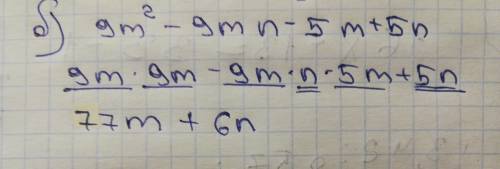 б) 9m² - 9mn - 5m + 5n
9m · 9m - 9m · n · 5m + 5n
77m + 6n